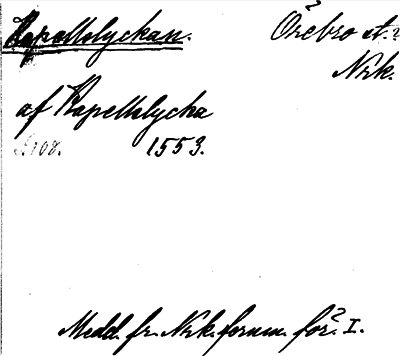 Kapellslyckan. Örebro st.
Nrk.
af Kapellslycka
1553.
Medd. fr. Nrk. fornm. för. I.